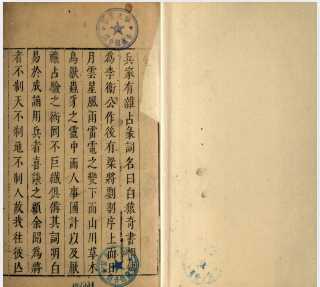 兵家有雜占彖詞名曰白猿奇書相
為李衛公作後有梁將劉鄩序上而日
月雲星風雨雷電之變下而山川草木
鳥獸蟲豸之靈中而人事國計以及厭
雜占驗之術罔不巨纖俱備其詞明白
易於成誦用兵者喜談之顧余聞為將
者不制天不制地不制人故我往彼亾